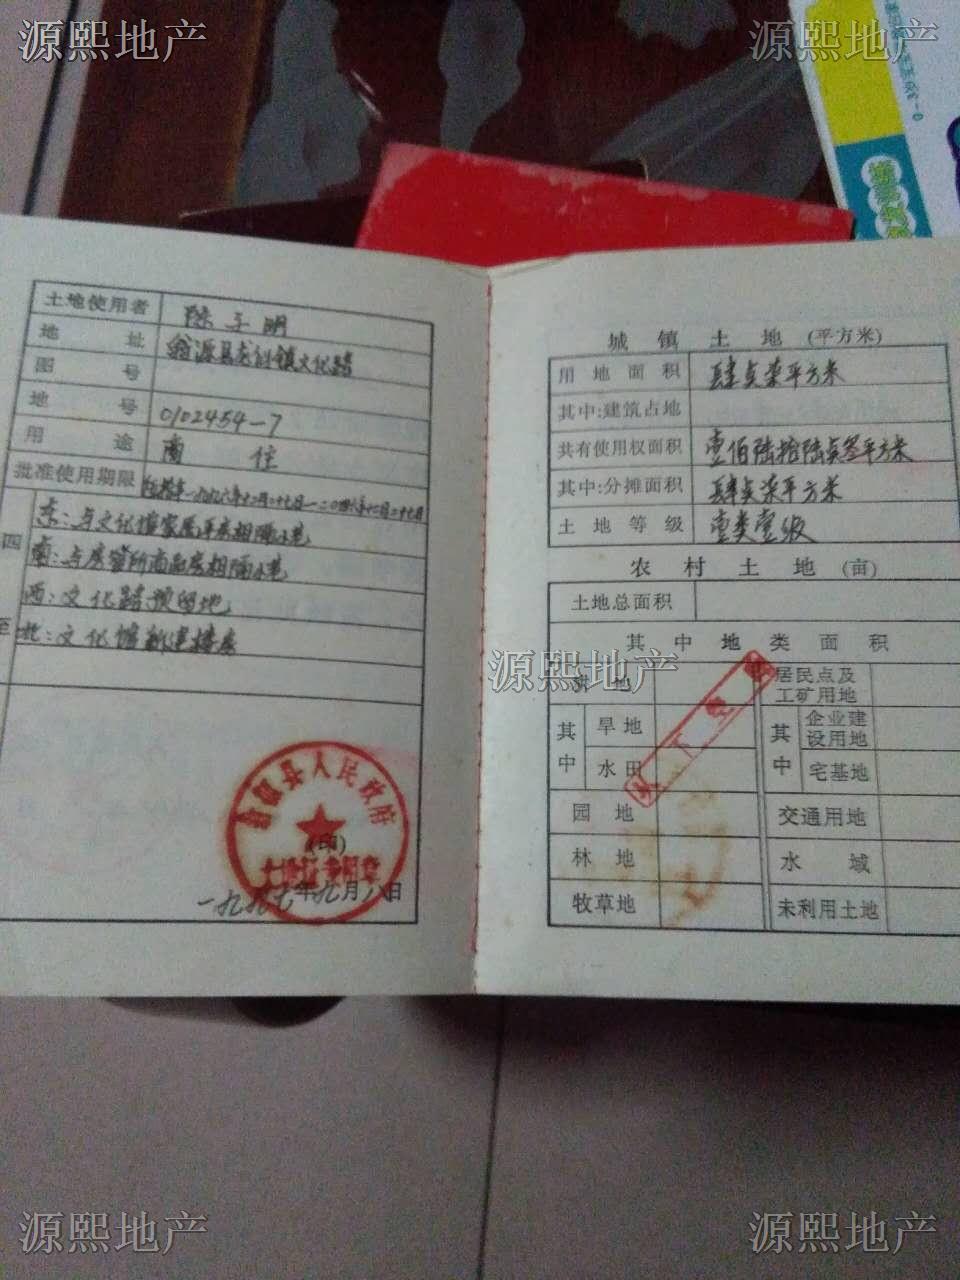 源熙地产
源熙地产
土地使用者 陈子明
地址 翁源县龙仙镇文化路
图号
地号 0102454-7
用途 商住
批准使用期限
四至
东：与文化馆家属平房相隔小巷
南：与房管所商品房相隔小巷
西：文化路预留地
北：文化馆新建楼房
翁源县人民政府
(印)
土地证专用章
一九九七年九月八日
城镇土地(平方米)
用地面积 肆点柒平方米
其中:建筑占地
共有使用权面积 壹佰陆拾陆点叁平方米
其中:分摊面积 肆点柒平方米
土地等级 壹类壹级
农村土地(亩)
土地总面积
其中地类面积
源熙地产
耕地
居民点及工矿用地
其中
旱地
水田
其中
企业建设用地
宅基地
以下空白
园地
交通用地
林地
水域
牧草地
未利用土地
源熙地产
源熙地产